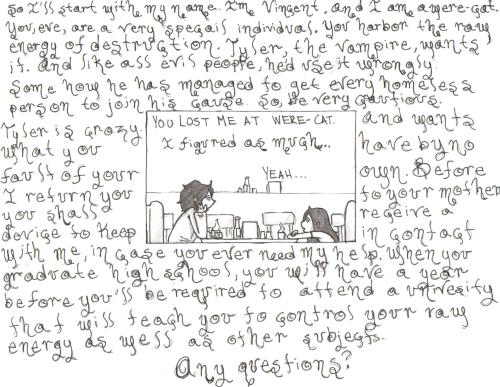 So I'll start with my name. I'm Vincent, and I am a were-cat.
You, eve, are a very special individual. You harbor the raw
energy of destruction. Tyler, the vampire, wants
it. And like all evil people, he'd use it wrongly.
Some how he has managed to get every homeless
person to join his cause. So, be very cautious.
Tyler is crazy. and wants
what you have by no
fault of your own. Before
I return you to your mother
you shall receive a
device to keep in contact
with me, in case you ever need my help. When you
graduate high school, you will have a year
before you'll be required to attend a university
that will teach you to control your raw
energy as well as other subjects.
Any questions?
YOU LOST ME AT WERE-CAT.
I figured as much...
YEAH...